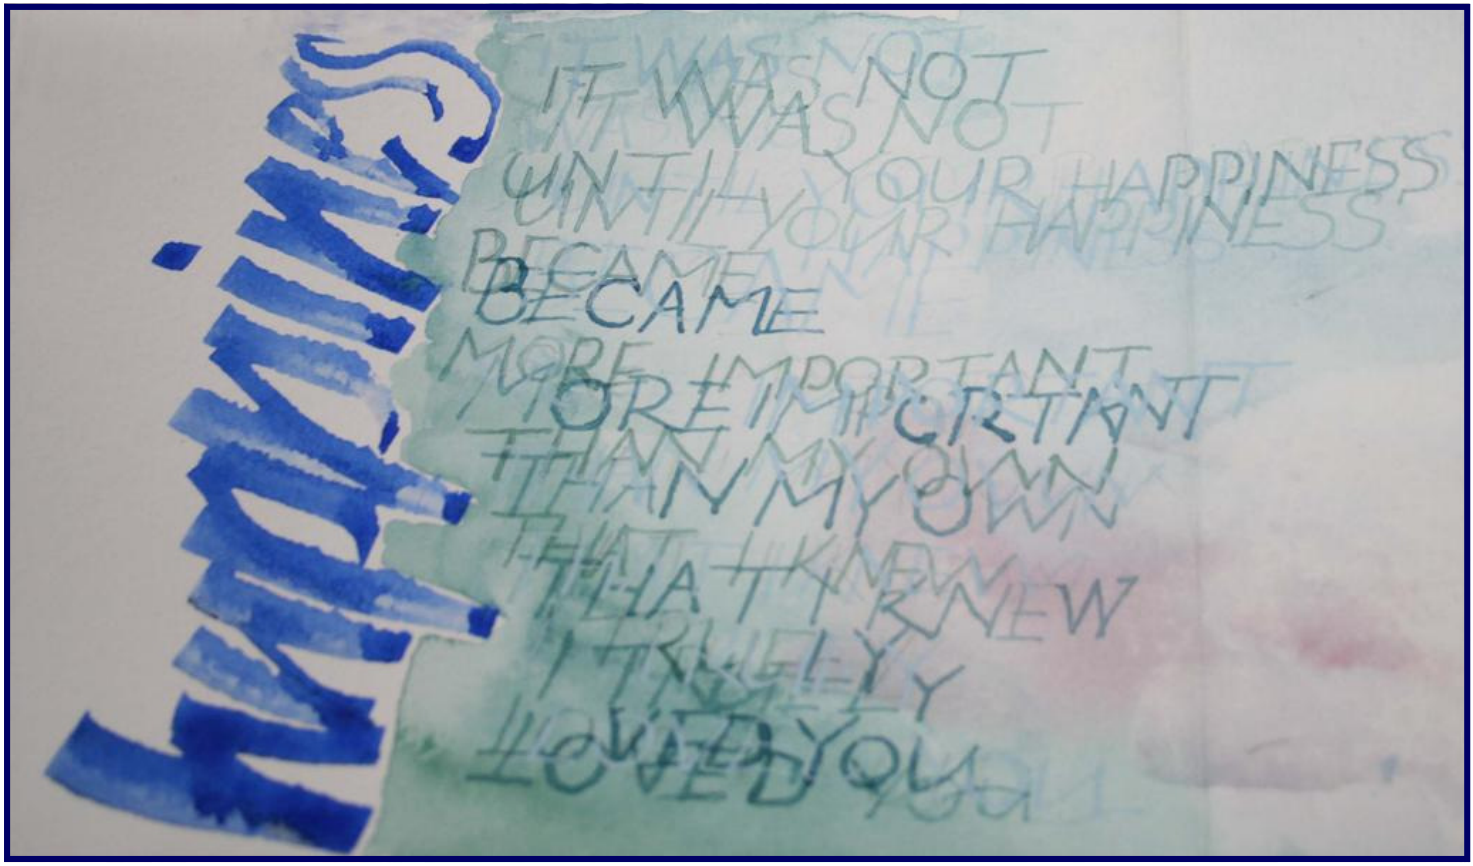 happiness
IT WAS NOT
IT WAS NOT
UNTIL YOUR HAPPINESS
UNTIL YOUR HAPPINESS
BECAME
BECAME
MORE IMPORTANT
MORE IMPORTANT
THAN MY OWN
THAN MY OWN
THAT I KNEW
THAT I KNEW
I TRUELY
I TRUELY
LOVED YOU
LOVED YOU